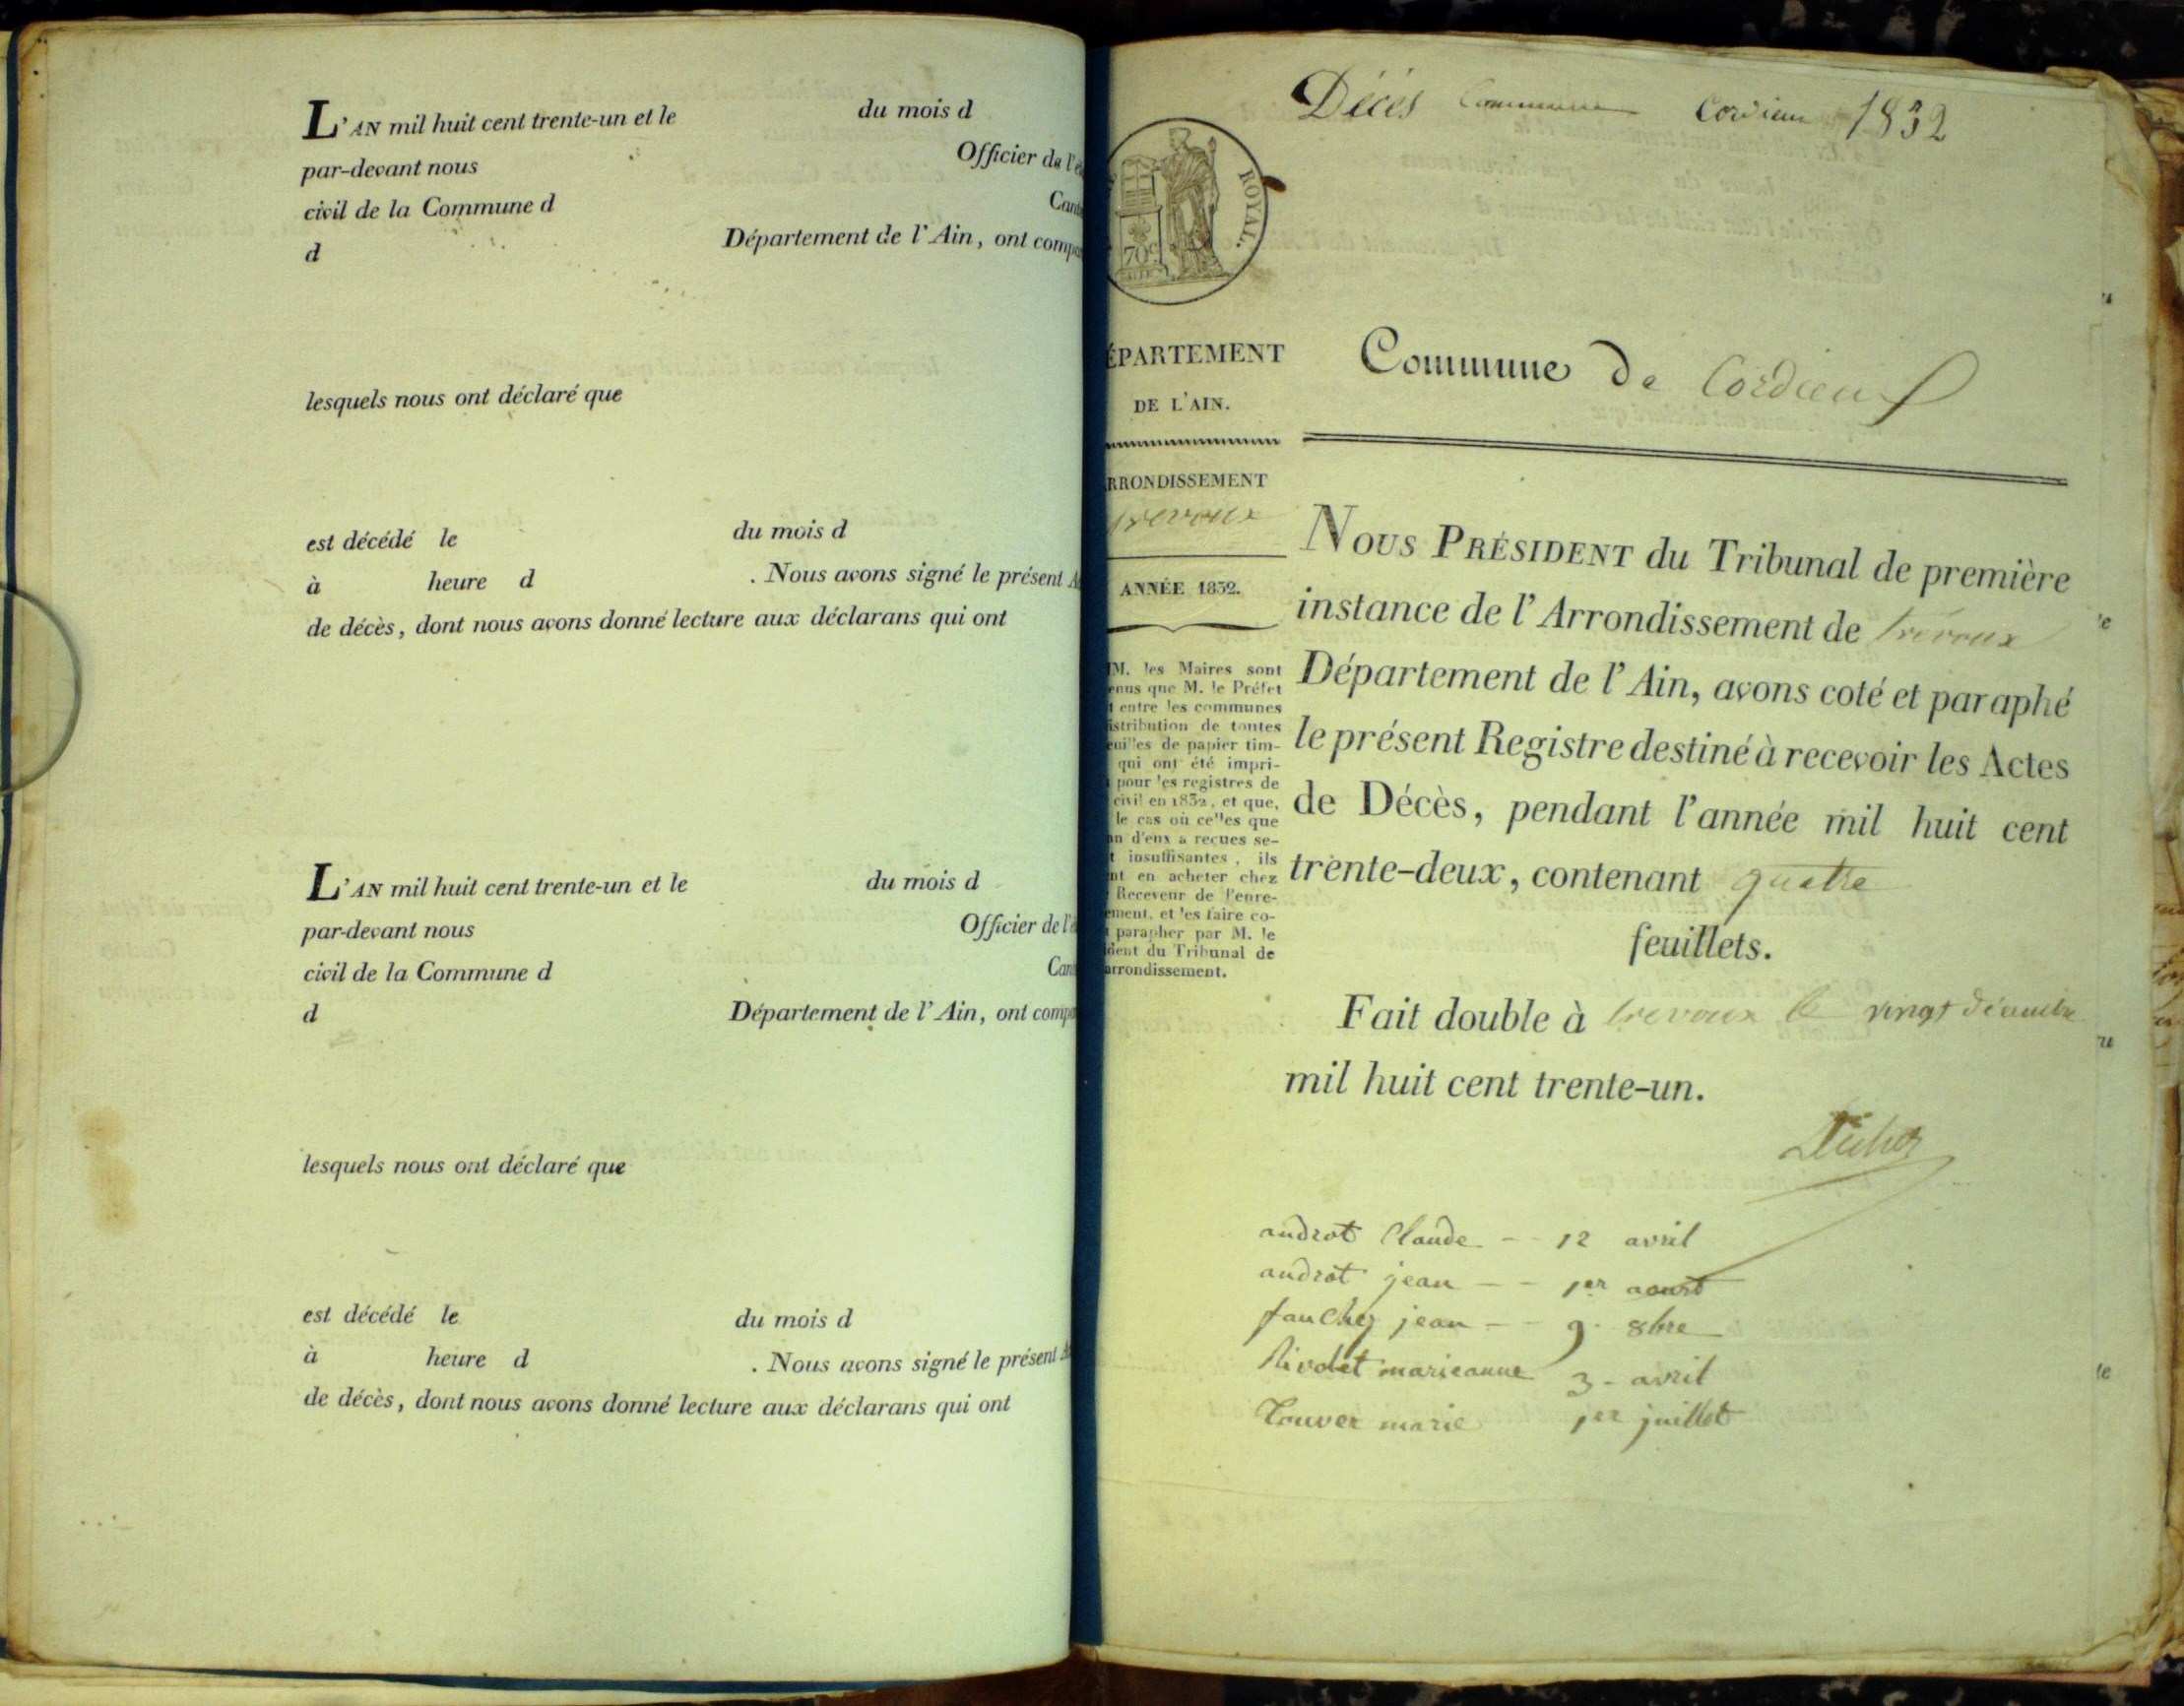 L'AN mil huit cent trente-un et le du mois d
par-devant nous Officier de l'é
civil de la Commune d Cant
d Département de l'Ain, ont compa
lesquels nous ont déclaré que
est décédé le du mois d
à heure d . Nous avons signé le présent A
de décès, dont nous avons donné lecture aux déclarans qui ont
L'AN mil huit cent trente-un et le du mois d
par-devant nous Officier de l'é
civil de la Commune d Can
d Département de l'Ain, ont compa
lesquels nous ont déclaré que
est décédé le du mois d
à heure d . Nous avons signé le présent A
de décès, dont nous avons donné lecture aux déclarans qui ont
Décès Commune Cordieux 1832
ROYAL.
70c
ÉPARTEMENT
DE L'AIN.
RRONDISSEMENT
trevoux
ANNÉE 1832.
M. les Maires sont
enus que M. le Préfet
t entre les communes
istribution de toutes
euilles de papier tim-
qui ont été impri-
pour les registres de
civil en 1832, et que,
le cas où celles que
un d'eux a reçues se-
t insuffisantes, ils
nt en acheter chez
Receveur de l'enre-
ement, et les faire co-
parapher par M. le
dent du Tribunal de
arrondissement.
Commune de Cordieux
NOUS PRÉSIDENT du Tribunal de première
instance de l'Arrondissement de trévoux
Département de l'Ain, avons coté et paraphé
le présent Registre destiné à recevoir les Actes
de Décès, pendant l'année mil huit cent
trente-deux, contenant quatre
feuillets.
Fait double à trevoux le vingt décembre
mil huit cent trente-un.
androt Claude -- 12 avril
androt jean -- 1er aoust
fauchez jean -- 9. 8bre
Rivolet marieanne 3 - avril
Touver marie 1er juillet